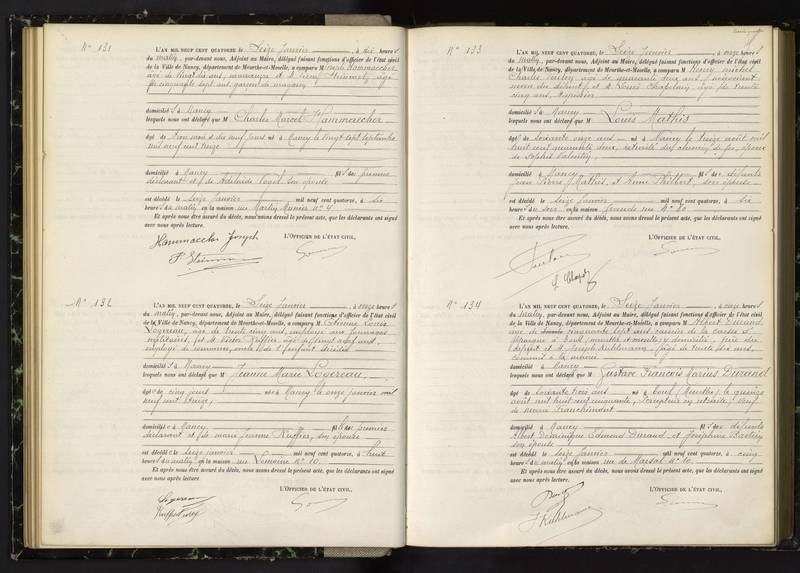 N° 131
L'AN MIL NEUF CENT QUATORZE, le Seize Janvier, à dix heures
du matin, par-devant nous, Adjoint au Maire, délégué faisant fonctions d'officier de l'état civil
de la Ville de Nancy, département de Meurthe-et-Moselle, a comparu M Joseph Hammaecher
âgé de vingt six ans, et M Pierre Steinmetz âgé
de cinquante sept ans garçon de magasin
domiciliés à Nancy
lesquels nous ont déclaré que M Charles Marcel Hammaecher
âgé de trois mois et dix neuf jours né à Nancy le vingt sept septembre
mil neuf cent treize
domicilié à Nancy fils du premier
déclarant et de Adélaïde Vogel son épouse
est décédé le Seize Janvier mil neuf cent quatorze, à six
heures du matin en la maison rue N° 4
Et après nous être assuré du décès, nous avons dressé le présent acte, que les déclarants ont signé
avec nous après lecture.
L'OFFICIER DE L'ÉTAT CIVIL,
Hammaecher Joseph
N° 132
L'AN MIL NEUF CENT QUATORZE, le Seize Janvier, à onze heures
du matin, par-devant nous, Adjoint au Maire, délégué faisant fonctions d'officier de l'état civil
de la Ville de Nancy, département de Meurthe-et-Moselle, a comparu M Etienne Louis
Logereau, âgé de trente cinq ans, employé aux
militaires, et Victor Ruffier, âgé de vingt neuf ans,
employé de commerce, oncle de l'enfant décédée
domiciliés à Nancy
lesquels nous ont déclaré que M Jeanne Marie Logereau
âgée de cinq jours née à Nancy le onze janvier mil
neuf cent
domiciliée à Nancy fille du premier
déclarant et de Marie Jeanne Ruffier, son épouse
est décédée le seize janvier mil neuf cent quatorze, à huit
heures du matin en la maison rue Lemoine N° 10
Et après nous être assuré du décès, nous avons dressé le présent acte, que les déclarants ont signé
avec nous après lecture.
L'OFFICIER DE L'ÉTAT CIVIL,
Logereau
N° 133
L'AN MIL NEUF CENT QUATORZE, le Seize Janvier, à onze heures
du matin, par-devant nous, Adjoint au Maire, délégué faisant fonctions d'officier de l'état civil
de la Ville de Nancy, département de Meurthe-et-Moselle, a comparu M Henry Michel
Charles âgé de quarante deux ans, négociant
neveu du défunt et M Louis Chapelain âgé de trente
cinq ans,
domiciliés à Nancy
lesquels nous ont déclaré que M Louis Mathis
âgé de soixante onze ans né à Nancy le treize août mil
huit cent quarante deux, retraité des chemins de fer, époux
de Sophie Valentin
domicilié à Nancy fils de défunts
Jean Pierre Mathis, et Anne Thiébert, son épouse
est décédé le seize Janvier mil neuf cent quatorze, à six
heures du soir en la maison grande rue N° 30
Et après nous être assuré du décès, nous avons dressé le présent acte, que les déclarants ont signé
avec nous après lecture.
L'OFFICIER DE L'ÉTAT CIVIL,
N° 134
L'AN MIL NEUF CENT QUATORZE, le Seize Janvier, à onze heures
du matin, par-devant nous, Adjoint au Maire, délégué faisant fonctions d'officier de l'état civil
de la Ville de Nancy, département de Meurthe-et-Moselle, a comparu M Albert Durand
âgé de cinquante sept ans caissier de la caisse d'
Epargne à Toul (meurthe et moselle) y domicilié, frère du
défunt et M Joseph Kuhlmann, âgé de trente six ans,
domicilié à Nancy
lesquels nous ont déclaré que M Gustave François Marius Durand
âgé de soixante trois ans né à Toul (Meurthe) le quinze
août mil huit cent cinquante, en retraite, veuf
de Marie Franchimont
domicilié à Nancy fils de défunts
Albert Dominique Edmond Durand, et Joséphine
son épouse
est décédé le seize Janvier mil neuf cent quatorze, à cinq
heures du matin en la maison rue de Marsal N° 10
Et après nous être assuré du décès, nous avons dressé le présent acte, que les déclarants ont signé
avec nous après lecture.
L'OFFICIER DE L'ÉTAT CIVIL,
J Kuhlmann